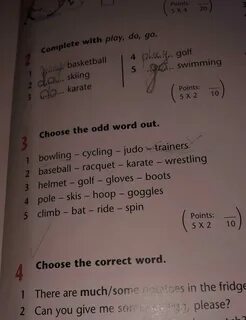 Points:
5 X 4 20
2 Complete with play, do, go.
1 play basketball
4 play golf
2 skiing
5 go swimming
3 do karate
Points:
5 X 2 10
3 Choose the odd word out.
1 bowling – cycling – judo – trainers
2 baseball – racquet – karate – wrestling
3 helmet – golf – gloves – boots
4 pole – skis – hoop – goggles
5 climb – bat – ride – spin
Points:
5 X 2 10
4 Choose the correct word.
1 There are much/some in the fridge
2 Can you give me please?